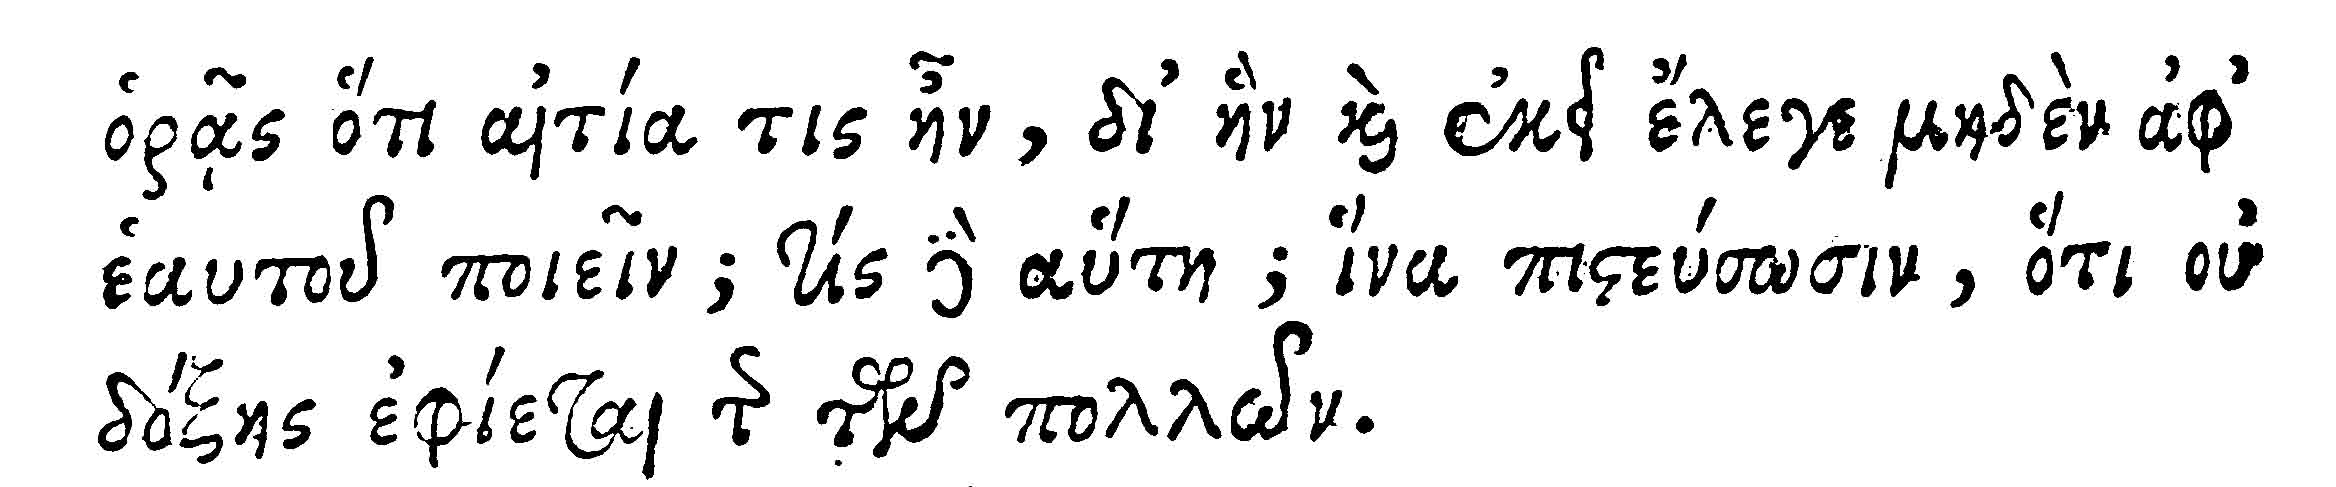 ὁρᾷς ὅτι αἰτία τις ἦν, δι᾽ ἣν ϗ̀ ἐκεῖ ἔλεγε μηδὲν ἀφ᾽
ἑαυτοῦ ποιεῖν; τίς δὲ αὕτη; ἵνα πιϛεύσωσιν, ὅτι οὐ
δόξης ἐφίεται τῆς τῶν πολλῶν.